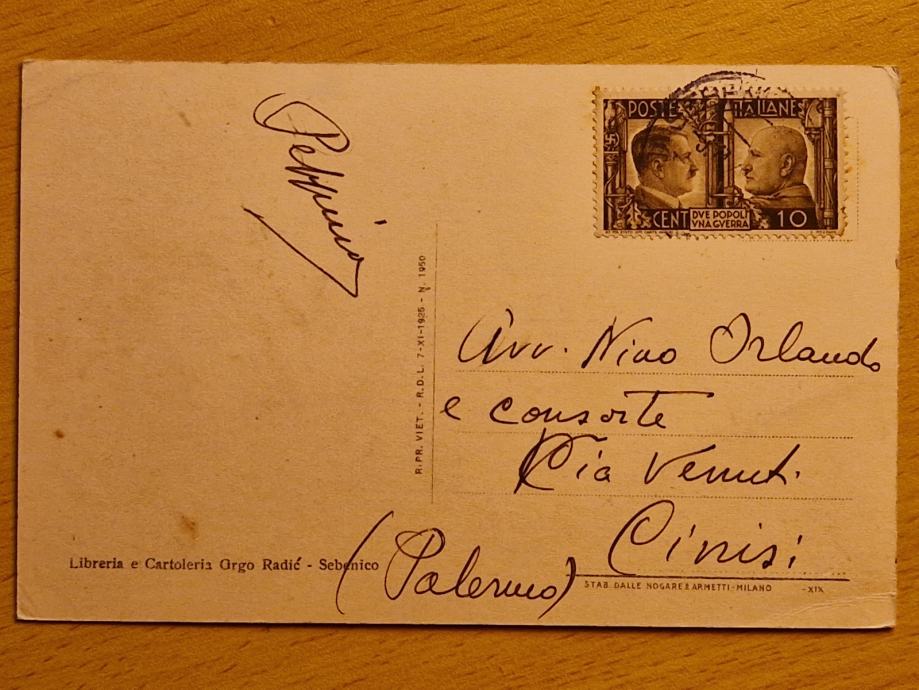 Peppino
POSTE ITALIANE
CENT DVE POPOLI 10
VNA GVERRA
RIPR. VIET. - R.D.L. 7-XI-1925 - N. 1950
Avv. Nino Orlando
e consorte
Via Venuti
Cinisi
(Palermo)
Libreria e Cartoleria Grgo Radić - Sebenico
STAB. DALLE NOGARE E ARMETTI-MILANO -XIX